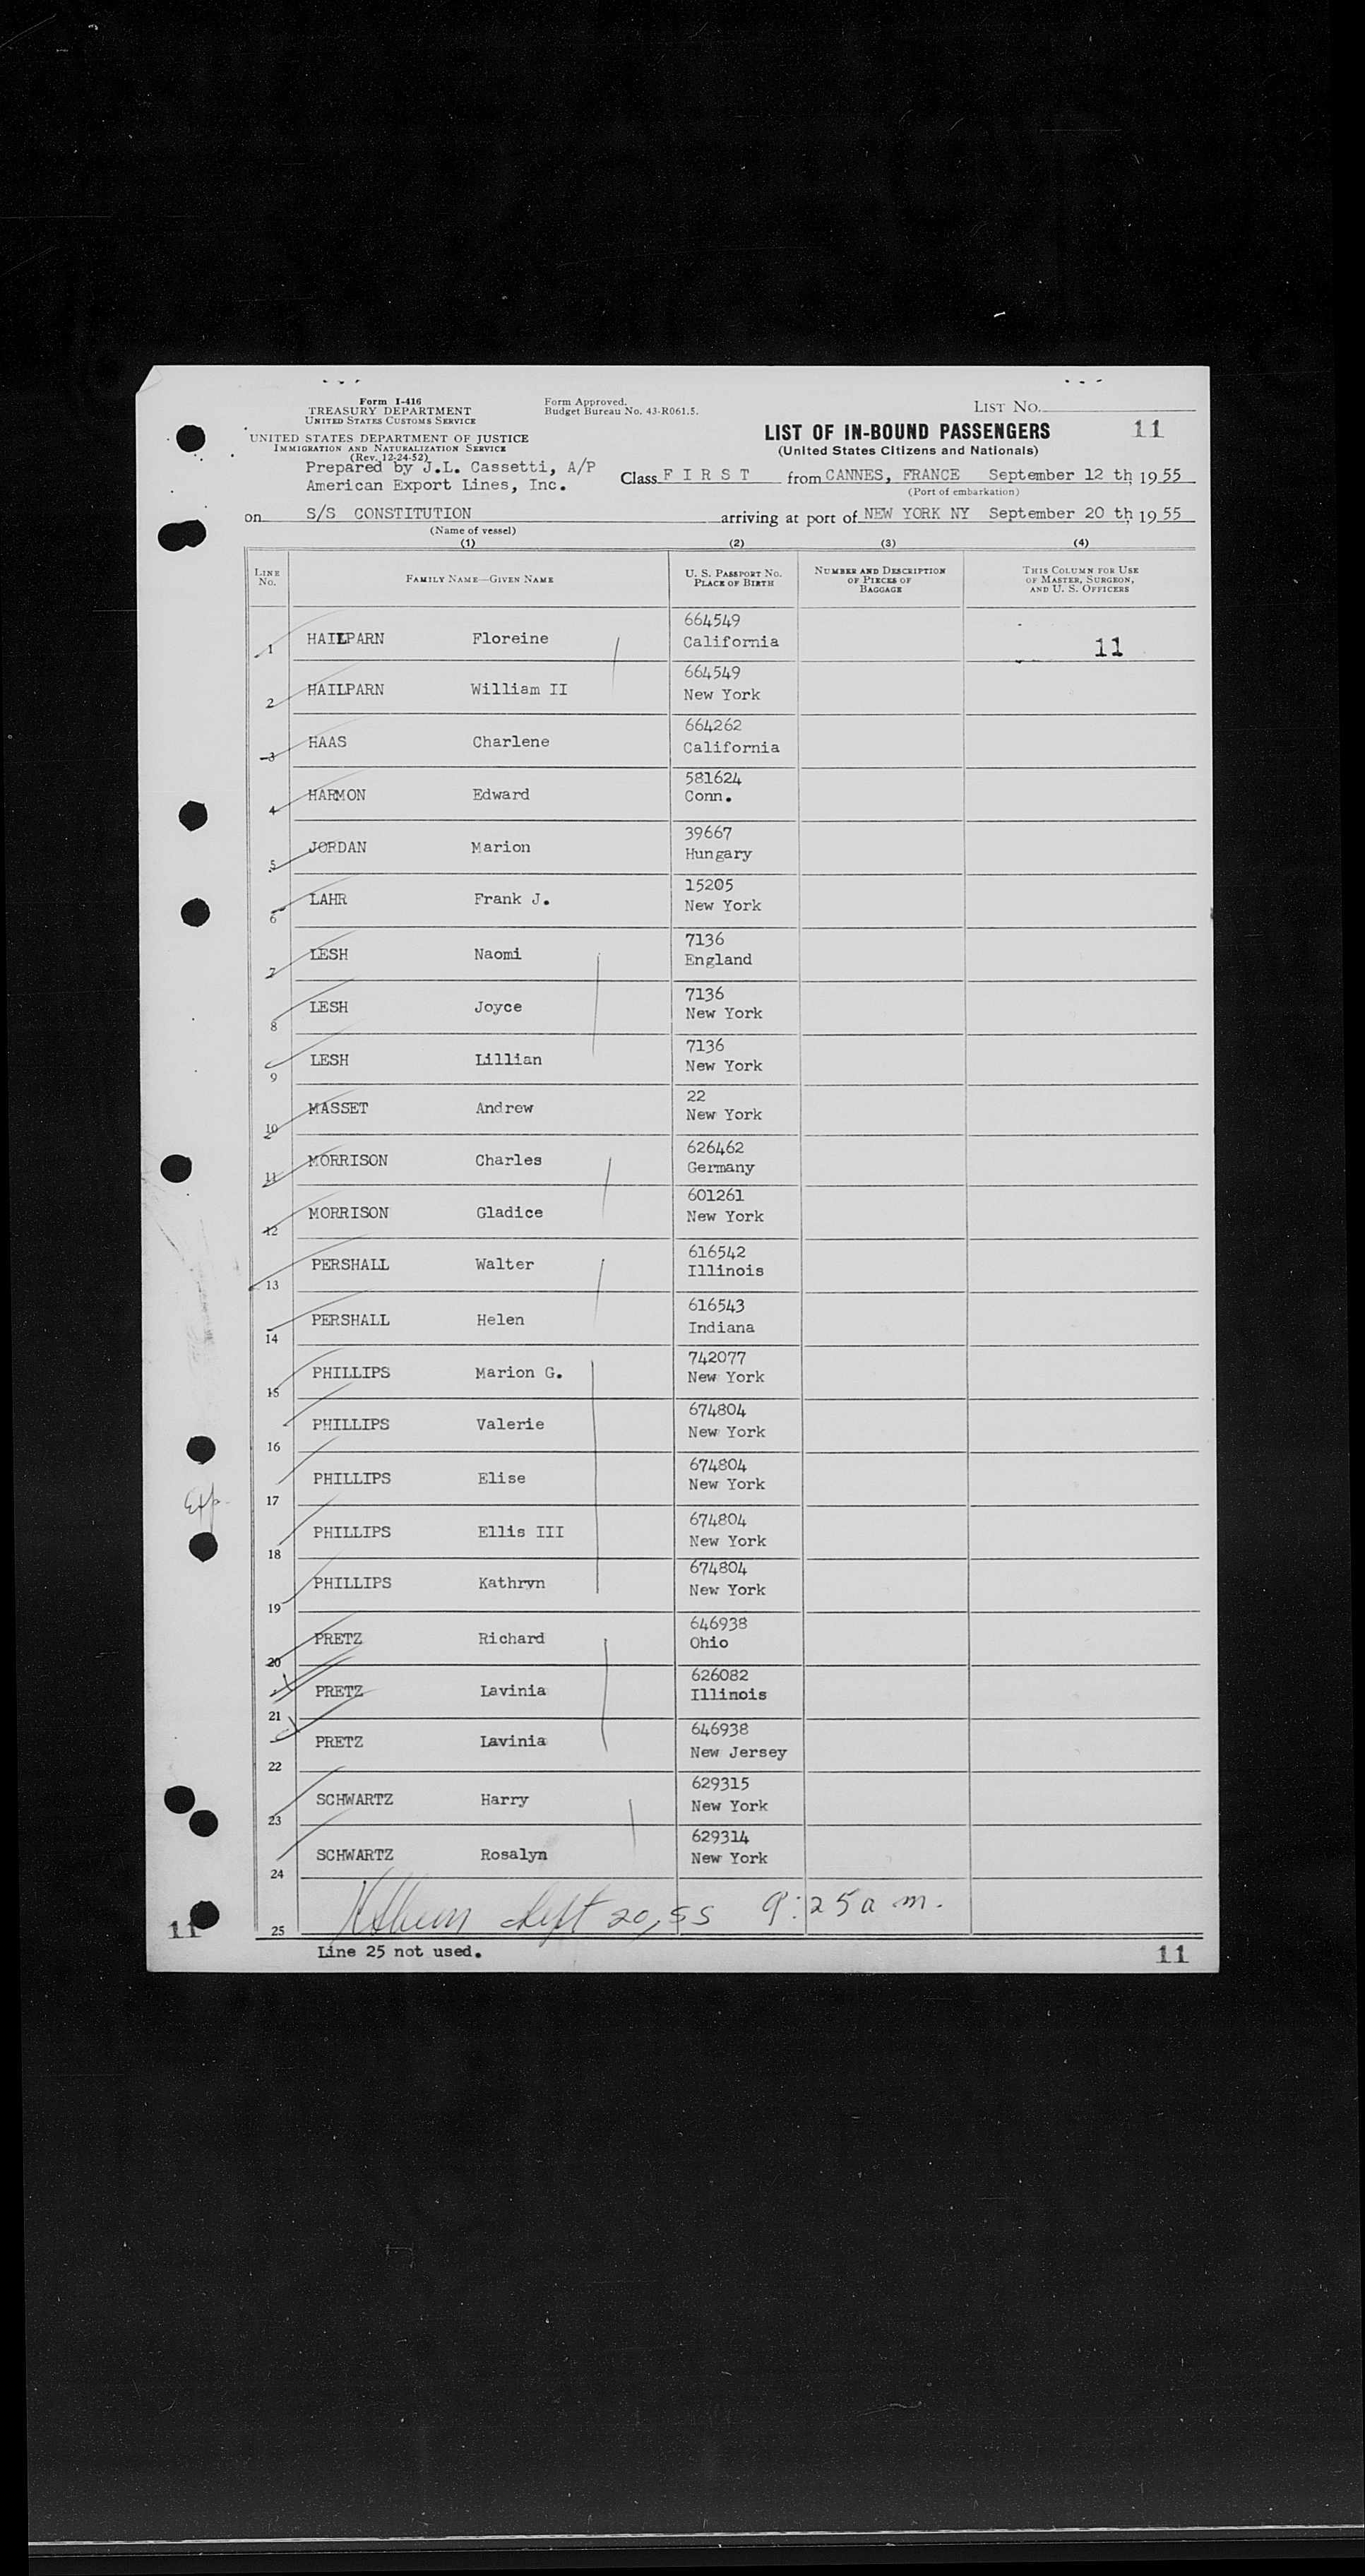 Form I-416
TREASURY DEPARTMENT
UNITED STATES CUSTOMS SERVICE
UNITED STATES DEPARTMENT OF JUSTICE
IMMIGRATION AND NATURALIZATION SERVICE
(Rev. 12-24-52)
Prepared by J.L. Cassetti, A/P
American Export Lines, Inc.
Form Approved.
Budget Bureau No. 43-R061.5.
LIST NO.
11
LIST OF IN-BOUND PASSENGERS
(United States Citizens and Nationals)
Class F I R S T from CANNES, FRANCE September 12 th 1955
(Port of embarkation)
on S/S CONSTITUTION arriving at port of NEW YORK NY September 20 th 1955
(Name of vessel)
(1) (2) (3) (4)
LINE NO. FAMILY NAME—GIVEN NAME U. S. PASSPORT NO. PLACE OF BIRTH NUMBER AND DESCRIPTION OF PIECES OF BAGGAGE THIS COLUMN FOR USE OF MASTER, SURGEON, AND U. S. OFFICERS
664549
1 HAILPARN Floreine California 11
664549
2 HAILPARN William II New York
664262
3 HAAS Charlene California
581624
4 HARMON Edward Conn.
39667
5 JORDAN Marion Hungary
15205
6 LAHR Frank J. New York
7136
7 LESH Naomi England
7136
8 LESH Joyce New York
7136
9 LESH Lillian New York
22
10 MASSET Andrew New York
626462
11 MORRISON Charles Germany
601261
12 MORRISON Gladice New York
616542
13 PERSHALL Walter Illinois
616543
14 PERSHALL Helen Indiana
742077
15 PHILLIPS Marion G. New York
674804
16 PHILLIPS Valerie New York
674804
17 PHILLIPS Elise New York
674804
18 PHILLIPS Ellis III New York
674804
19 PHILLIPS Kathryn New York
646938
20 PRETZ Richard Ohio
626082
21 PRETZ Lavinia Illinois
646938
22 PRETZ Lavinia New Jersey
629315
23 SCHWARTZ Harry New York
629314
24 SCHWARTZ Rosalyn New York
25 Sept 20, 55 9:25 a m.
11
Line 25 not used.
11